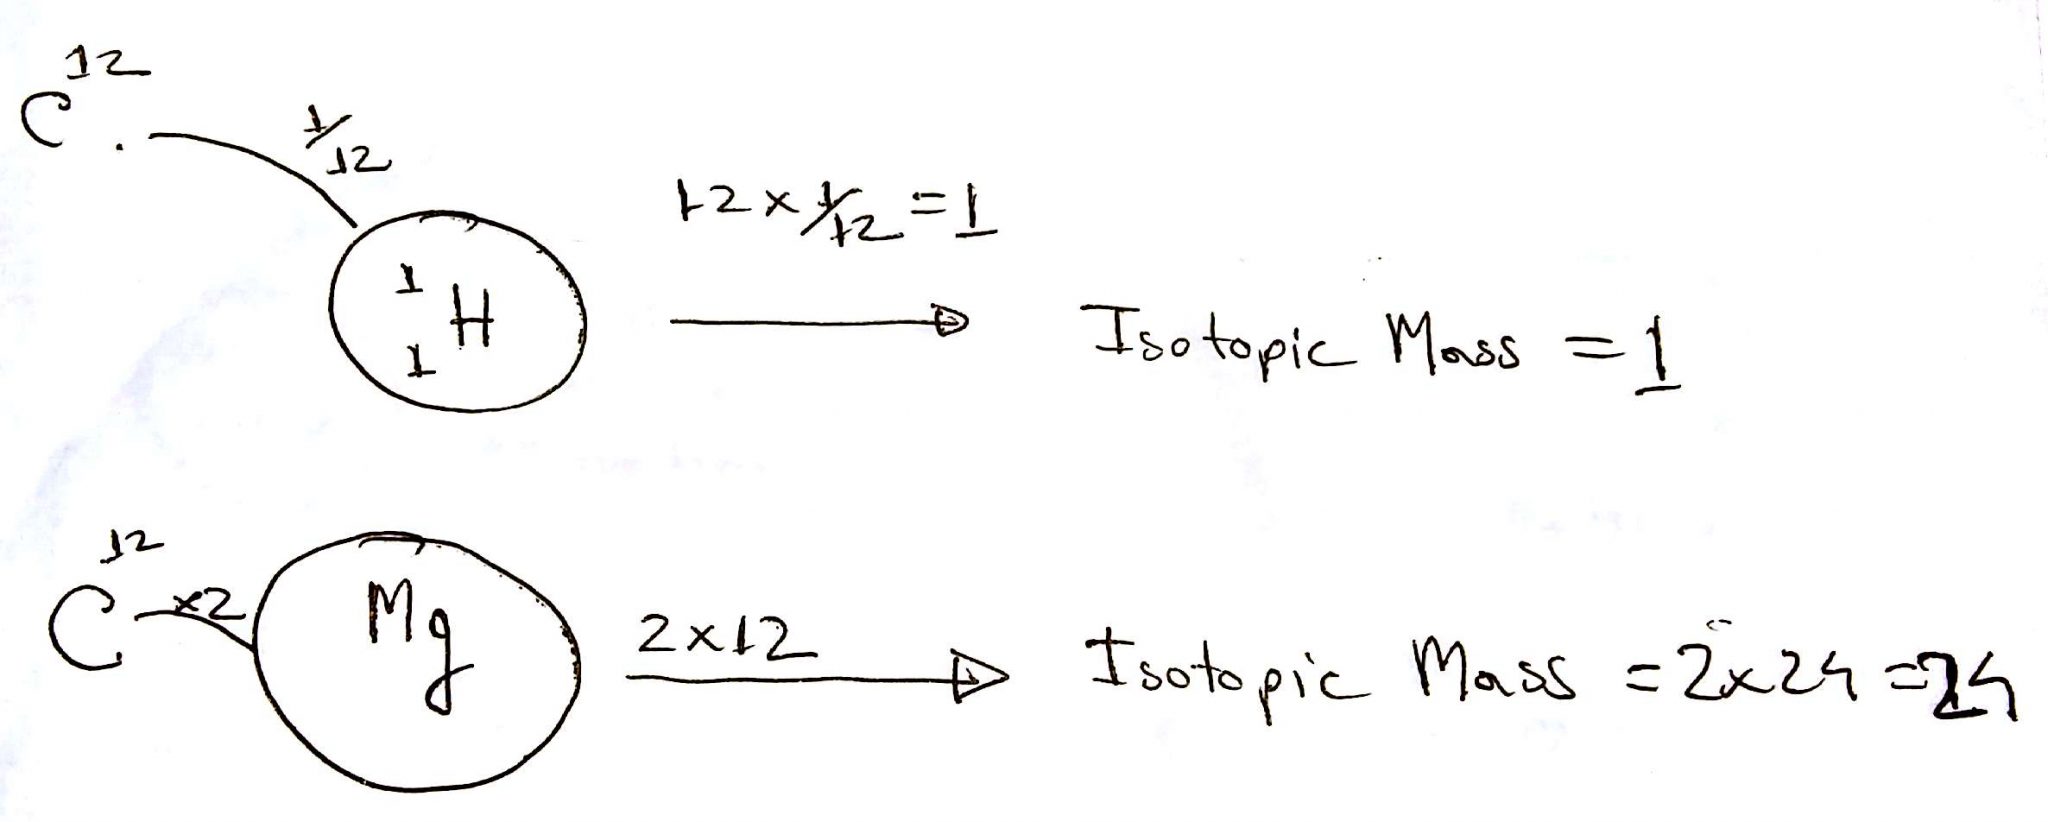 12
C
1/12
12 x 1/12 = 1
1
H
1
Isotopic Mass = 1
12
C x2
Mg
2x12
Isotopic Mass = 2x24 = 24